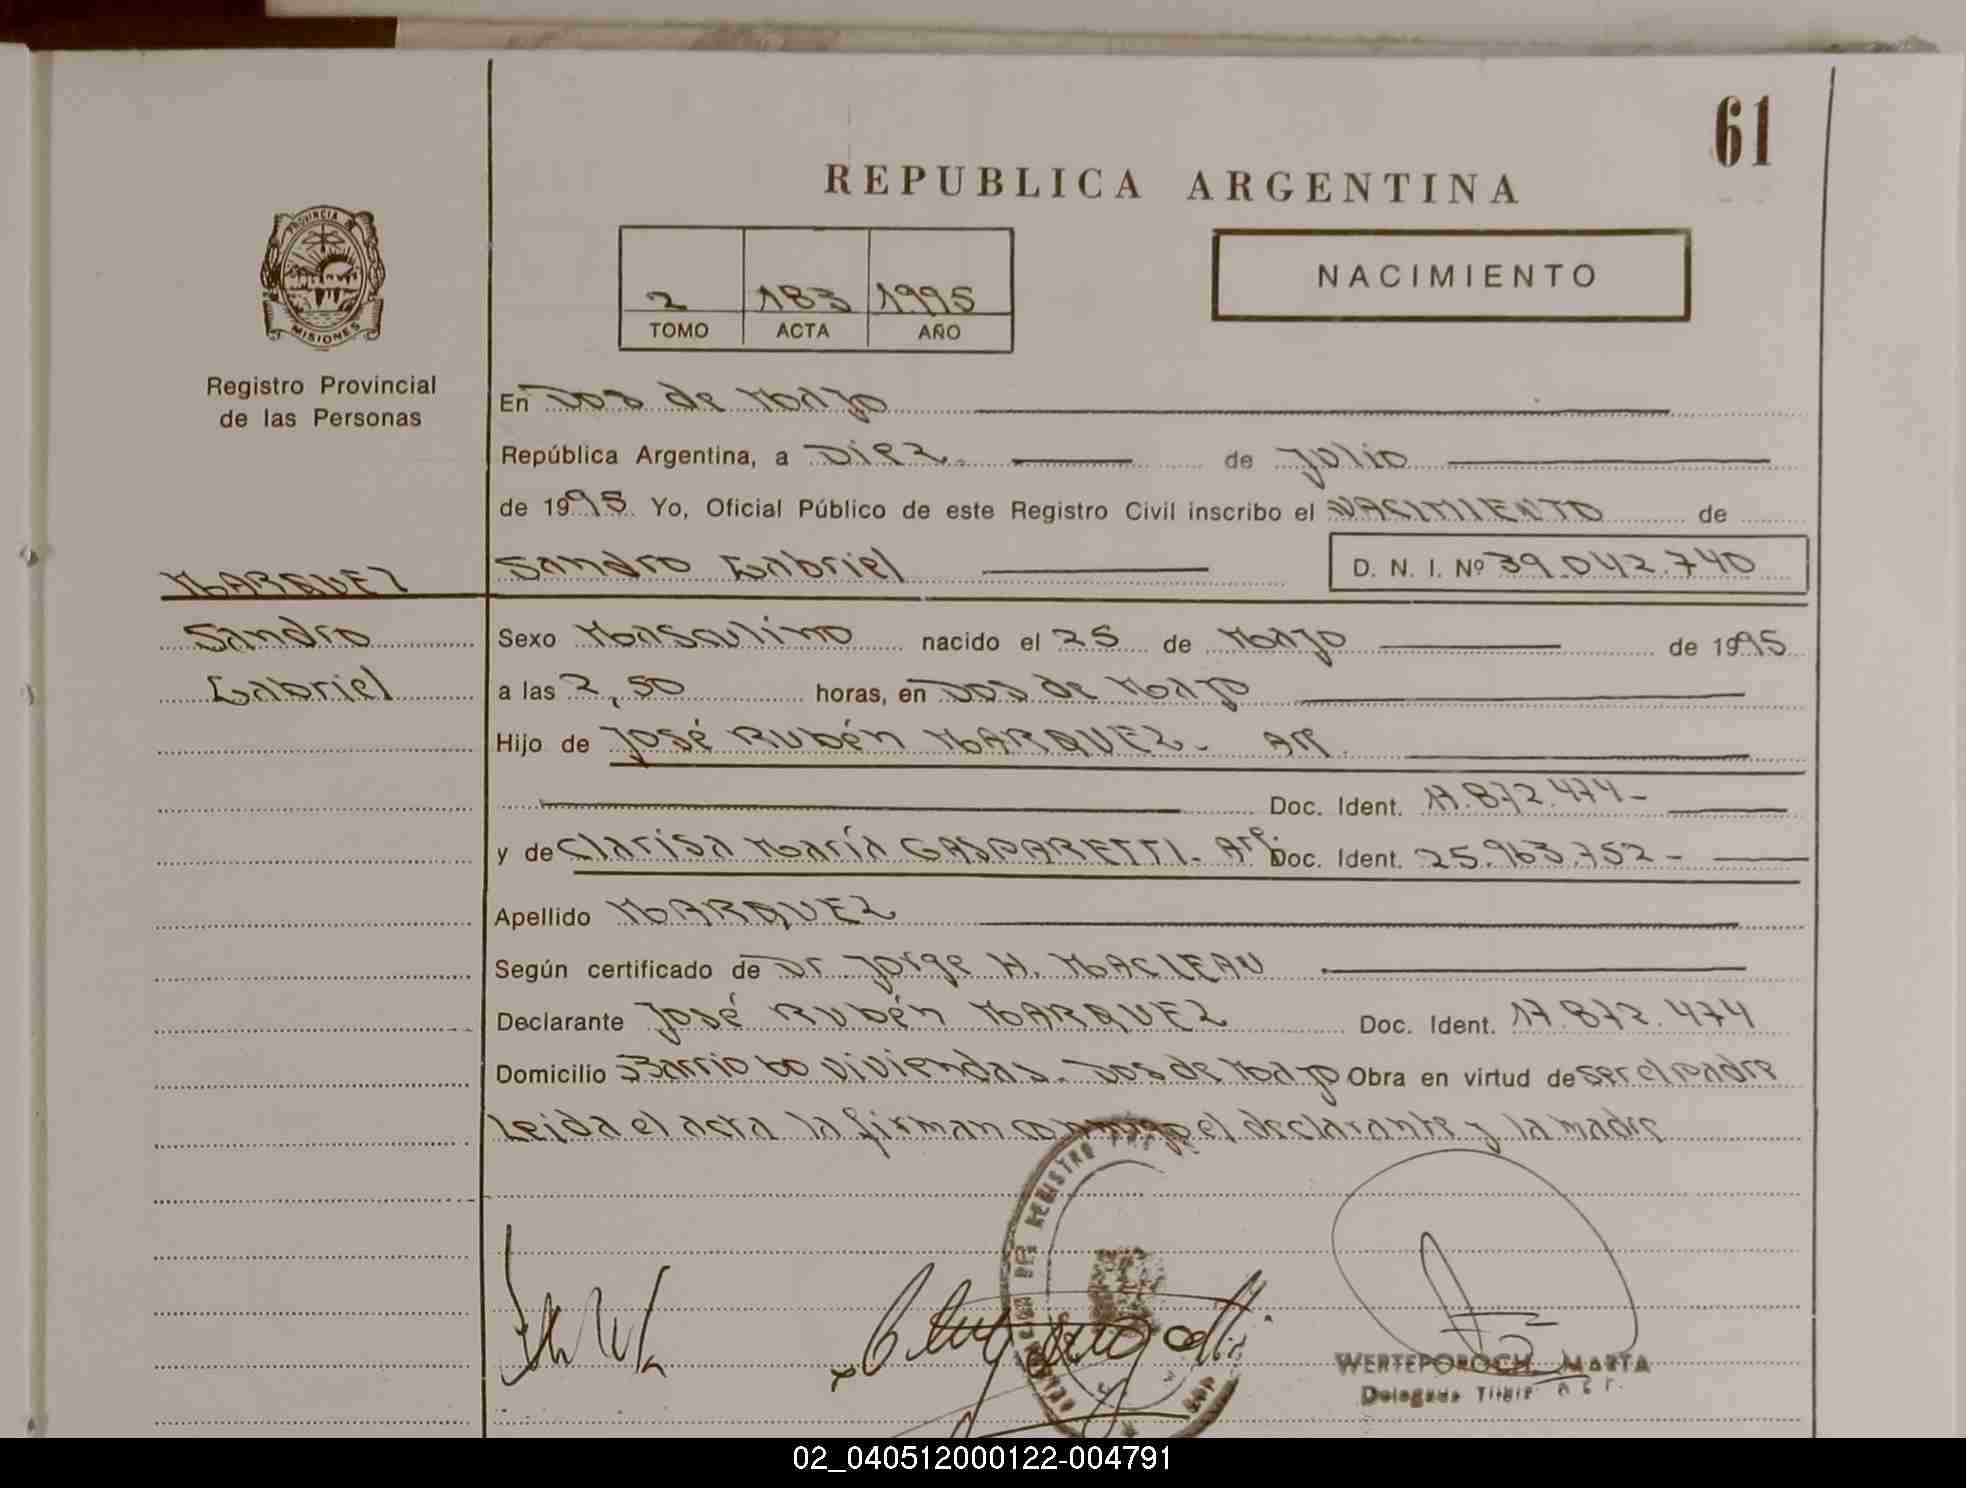 61
REPUBLICA ARGENTINA
PROVINCIA
MISIONES
Registro Provincial
de las Personas
2 183 1995
TOMO ACTA AÑO
NACIMIENTO
En Dos de Mayo
República Argentina, a Diez. de Julio
de 1995 Yo, Oficial Público de este Registro Civil inscribo el NACIMIENTO de
MARQUEZ Sandro Gabriel D. N. I. Nº 39.042.740
Sandro Sexo Masculino nacido el 25 de Mayo de 1995
Gabriel a las 2,50 horas, en Dos de Mayo
Hijo de José Rubén MARQUEZ - Arg.
Doc. Ident. 17.872.474 -
y de Clarisa María GASPARETTI - Arg. Doc. Ident. 25.963.752 -
Apellido MARQUEZ
Según certificado de Dr Jorge H. MACLEAN
Declarante José Rubén MARQUEZ Doc. Ident. 17.872.474
Domicilio Barrio 60 viviendas - Dos de Mayo Obra en virtud de ser el padre
Leida el acta la firman conmigo el declarante y la madre
DEL REGISTRO
WERTEPOROCH MARTA
Delegada Titular
02_040512000122-004791